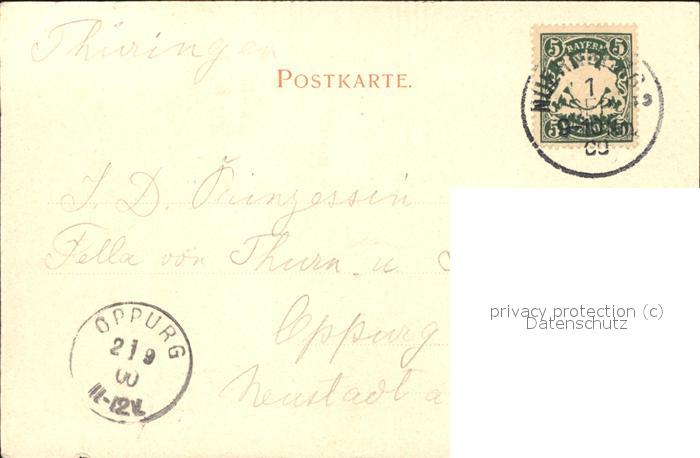 Thüringen
POSTKARTE.
5 BAYERN 5
5 5
NUERNBERG
1
09
J. D. Prinzessin
Fella von Thurn u
Oppurg
Neustadt a
OPPURG
2 9
00
11-12V.
privacy protection (c)
Datenschutz